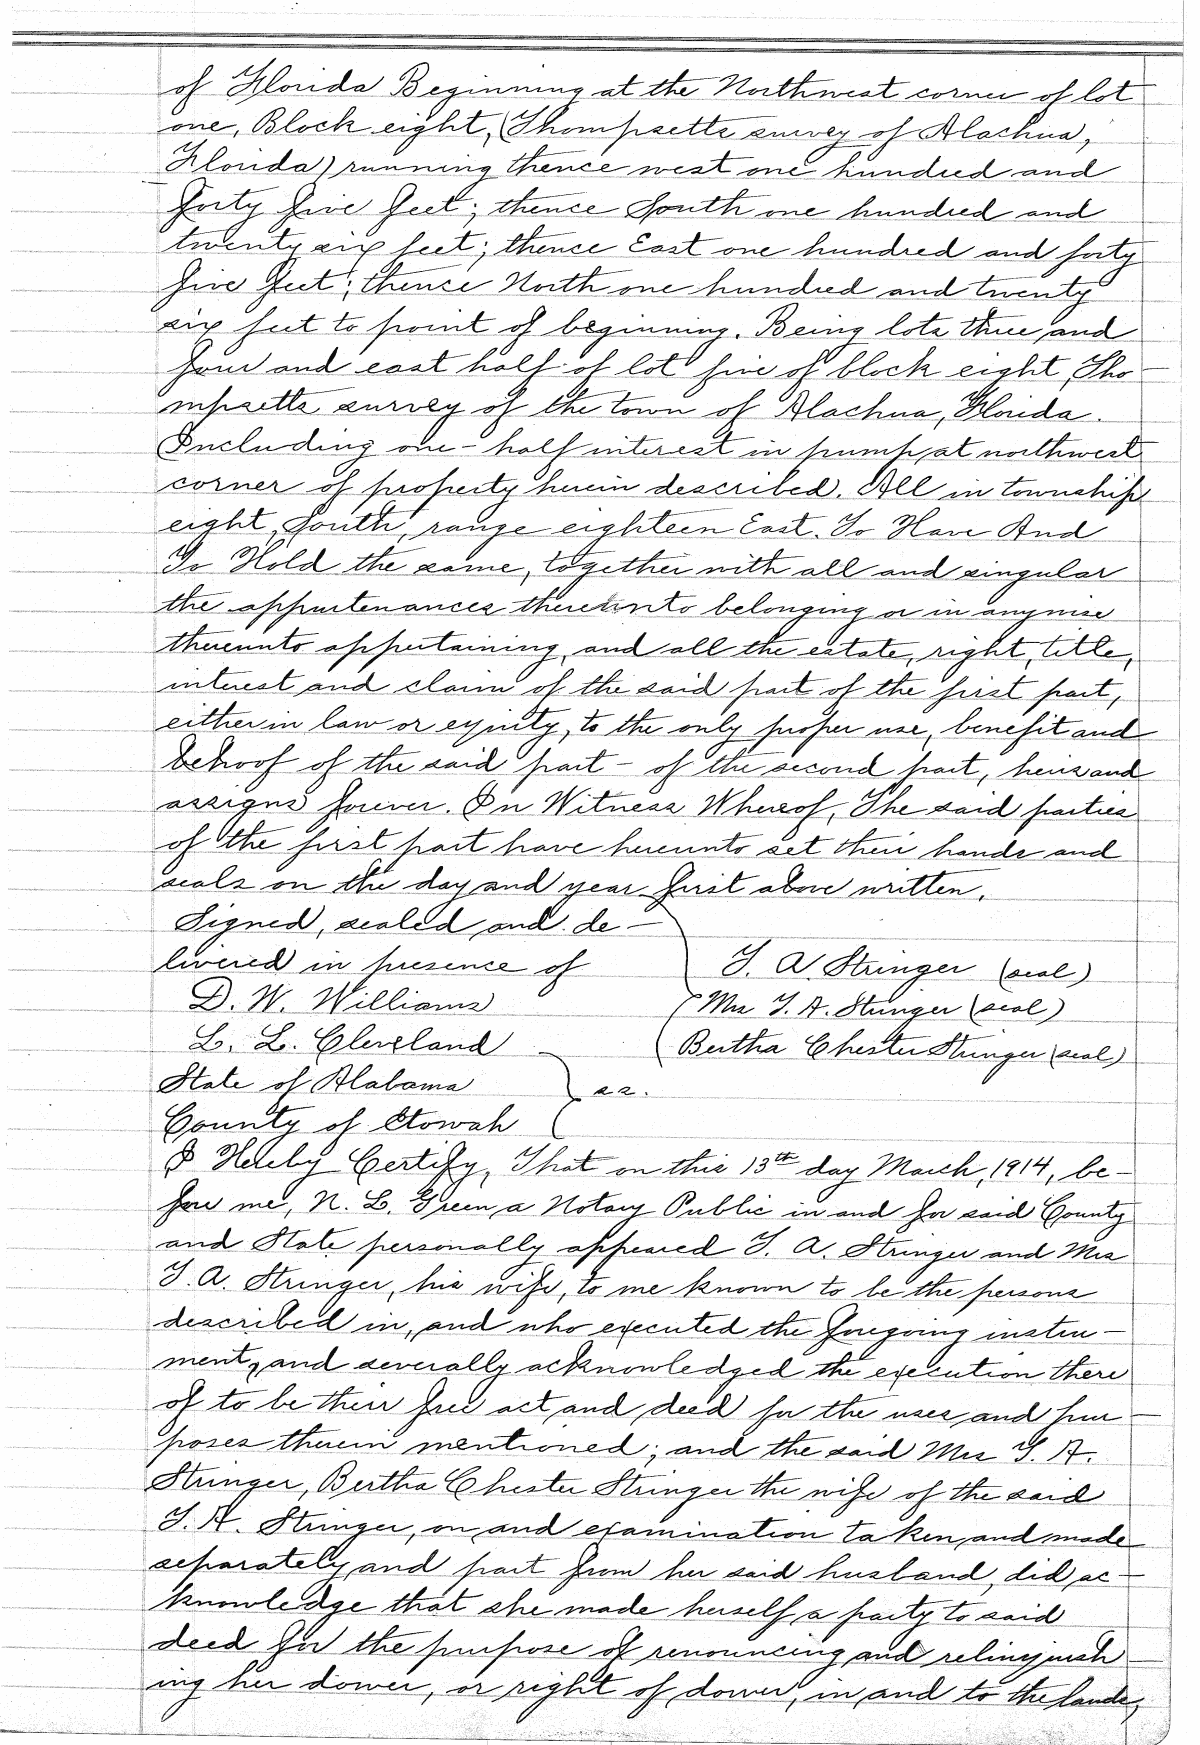 of Florida Beginning at the Northwest corner of lot
one, Block eight, (Thompsetts survey of Alachua,
Florida) running thence west one hundred and
forty five feet; thence South one hundred and
twenty six feet; thence East one hundred and forty
five feet; thence North one hundred and twenty
six feet to point of beginning. Being lots three and
four and east half of lot five of block eight, Tho-
mpsetts survey of the town of Alachua, Florida.
Including one-half interest in pump at northwest
corner of property herein described. All in township
eight, South, range eighteen East. To Have And
To Hold the same, together with all and singular
the appurtenances thereunto belonging or in anywise
thereunto appertaining, and all the estate, right, title,
interest and claim of the said part of the first part,
either in law or equity, to the only proper use, benefit and
behoof of the said part- of the second part, heirs and
assigns forever. In Witness Whereof, The said parties
of the first part have hereunto set their hands and
seals on the day and year first above written.
Signed, sealed and de-
livered in presence of T. A. Stringer (seal)
D. W. Williams Mrs T. A. Stringer (seal)
L. L. Cleveland Bertha Chester Stringer (seal)
State of Alabama ss.
County of Etowah
I Hereby Certify, That on this 13th day March, 1914, be-
fore me, N. L. Green, a Notary Public in and for said County
and State personally appeared T. A. Stringer and Mrs
T. A. Stringer, his wife, to me known to be the persons
described in, and who executed the foregoing instru-
ment, and severally acknowledged the execution there
of to be their free act and deed for the uses and pur-
poses therein mentioned; and the said Mrs T. A.
Stringer, Bertha Chester Stringer the wife of the said
T. A. Stringer, on and examination taken and made
separately and part from her said husband, did ac-
knowledge that she made herself a party to said
deed for the purpose of renouncing and relinquish-
ing her dower, or right of dower, in and to the lands,